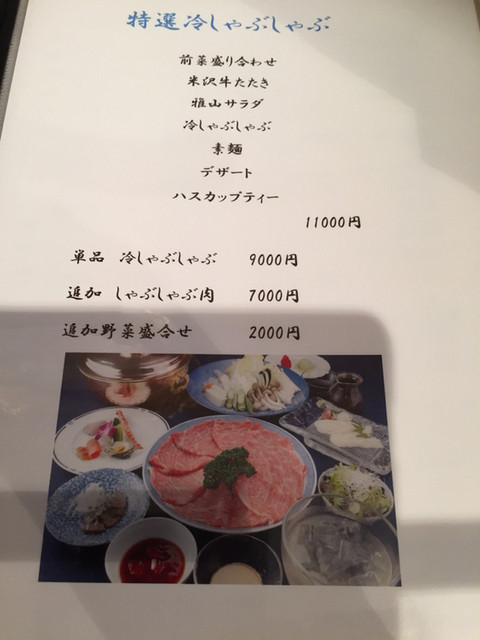 特選冷しゃぶしゃぶ
前菜盛り合わせ
米沢牛たたき
雅山サラダ
冷しゃぶしゃぶ
素麺
デザート
ハスカップティー
11000円
単品 冷しゃぶしゃぶ 9000円
追加 しゃぶしゃぶ肉 7000円
追加野菜盛合せ 2000円